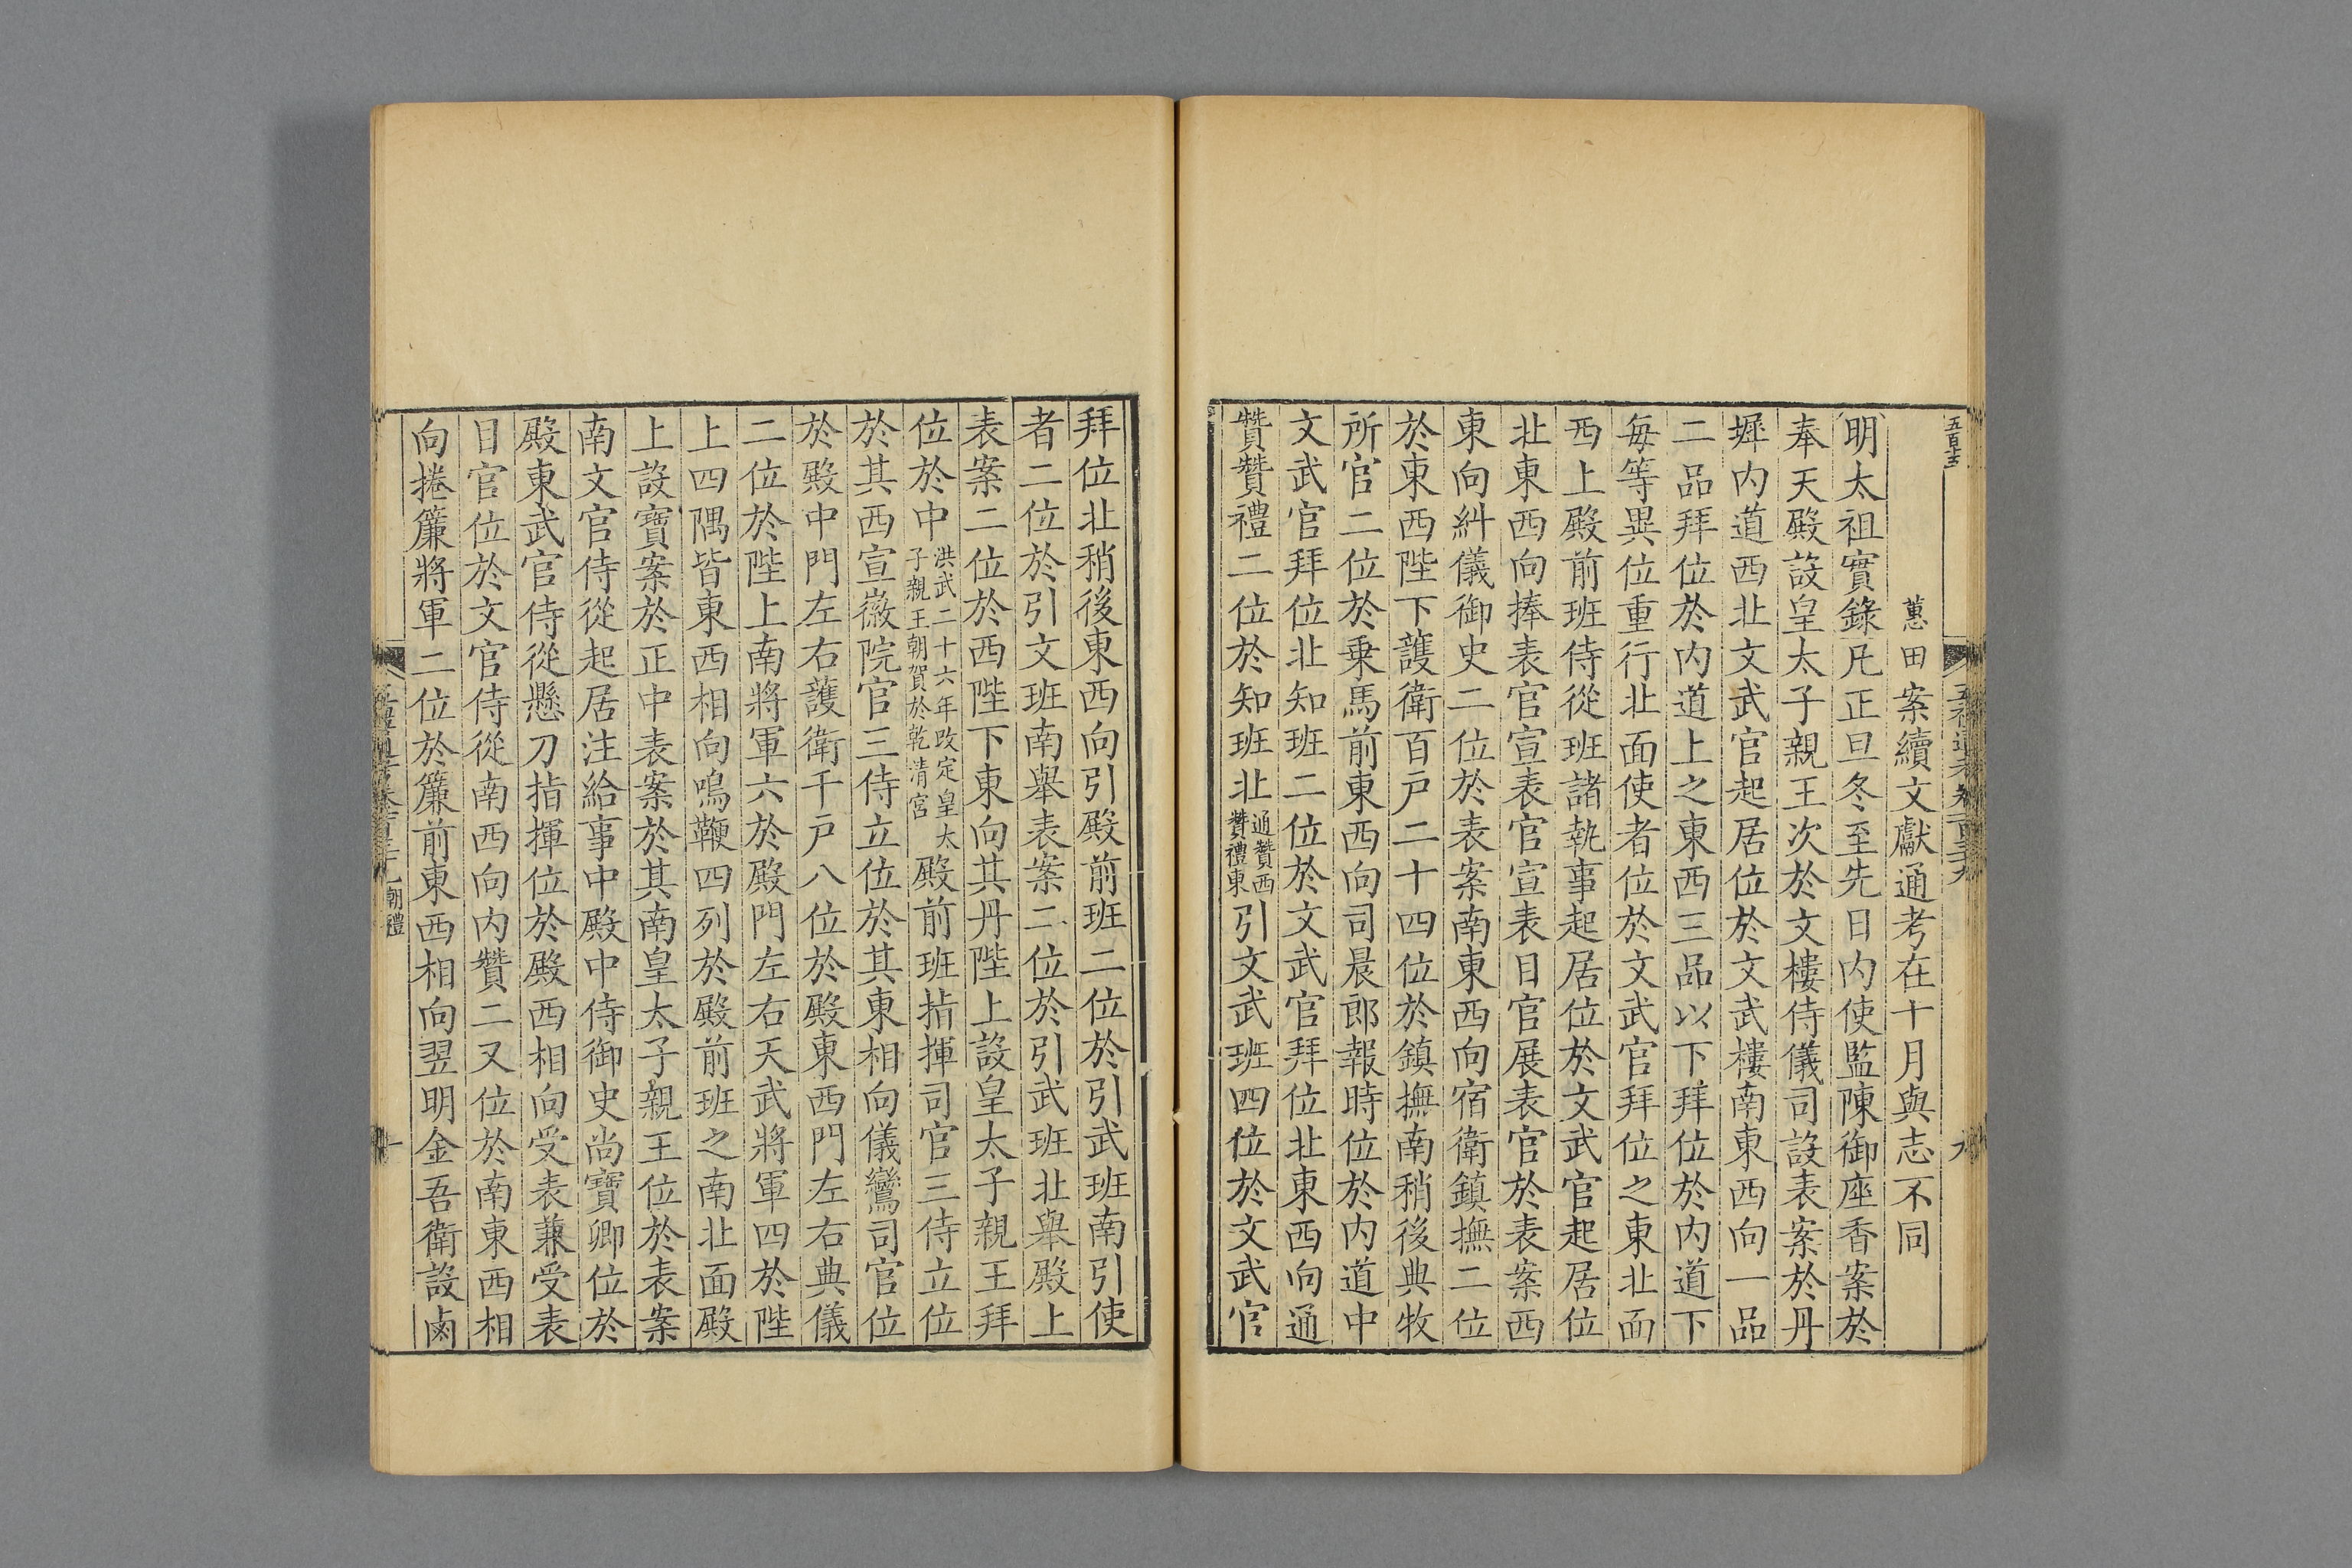 蕙田案續文獻通考在十月與志不同
明太祖實錄凡正旦冬至先日内使監陳御座香案於
奉天殿設皇太子親王次於文樓侍儀司設表案於丹
墀内道西北文武官起居位於文武樓南東西向一品
二品拜位於内道上之東西三品以下拜位於内道下
每等異位重行北面使者位於文武官拜位之東北面
西上殿前班侍從班諸執事起居位於文武官起居位
北東西向捧表官宣表官宣表目官展表官於表案西
東向糾儀御史二位於表案南東西向宿衛鎮撫二位
於東西陛下護衛百戸二十四位於鎮撫南稍後典牧
所官二位於乗馬前東西向司晨郎報時位於内道中
文武官拜位北知班二位於文武官拜位北東西向通
贊贊禮二位於知班北通贊西贊禮東引文武班四位於文武官
拜位北稍後東西向引殿前班二位於引武班南引使
者二位於引文班南舉表案二位於引武班北舉殿上
表案二位於西陛下東向其丹陛上設皇太子親王拜
位於中洪武二十六年改定皇太子親王朝賀於乾清宮殿前班指揮司官三侍立位
於其西宣徽院官三侍立位於其東相向儀鸞司官位
於殿中門左右護衛千戸八位於殿東西門左右典儀
二位於陛上南將軍六於殿門左右天武將軍四於陛
上四隅皆東西相向鳴鞭四列於殿前班之南北面殿
上設寶案於正中表案於其南皇太子親王位於表案
南文官侍從起居注給事中殿中侍御史尚寶卿位於
殿東武官侍從懸刀指揮位於殿西相向受表兼受表
目官位於文官侍從南西向内贊二又位於南東西相
向捲簾將軍二位於簾前東西相向翌明金吾衛設鹵
朝禮